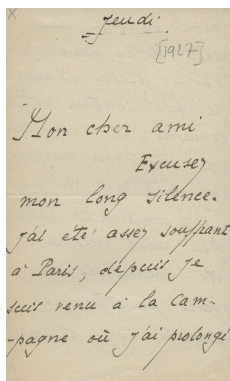 Jeudi
[1927]
Mon cher ami
Excusez
mon long silence.
j'ai été assez souffrant
à Paris, depuis je
suis venu à la cam-
-pagne où j'ai prolongé